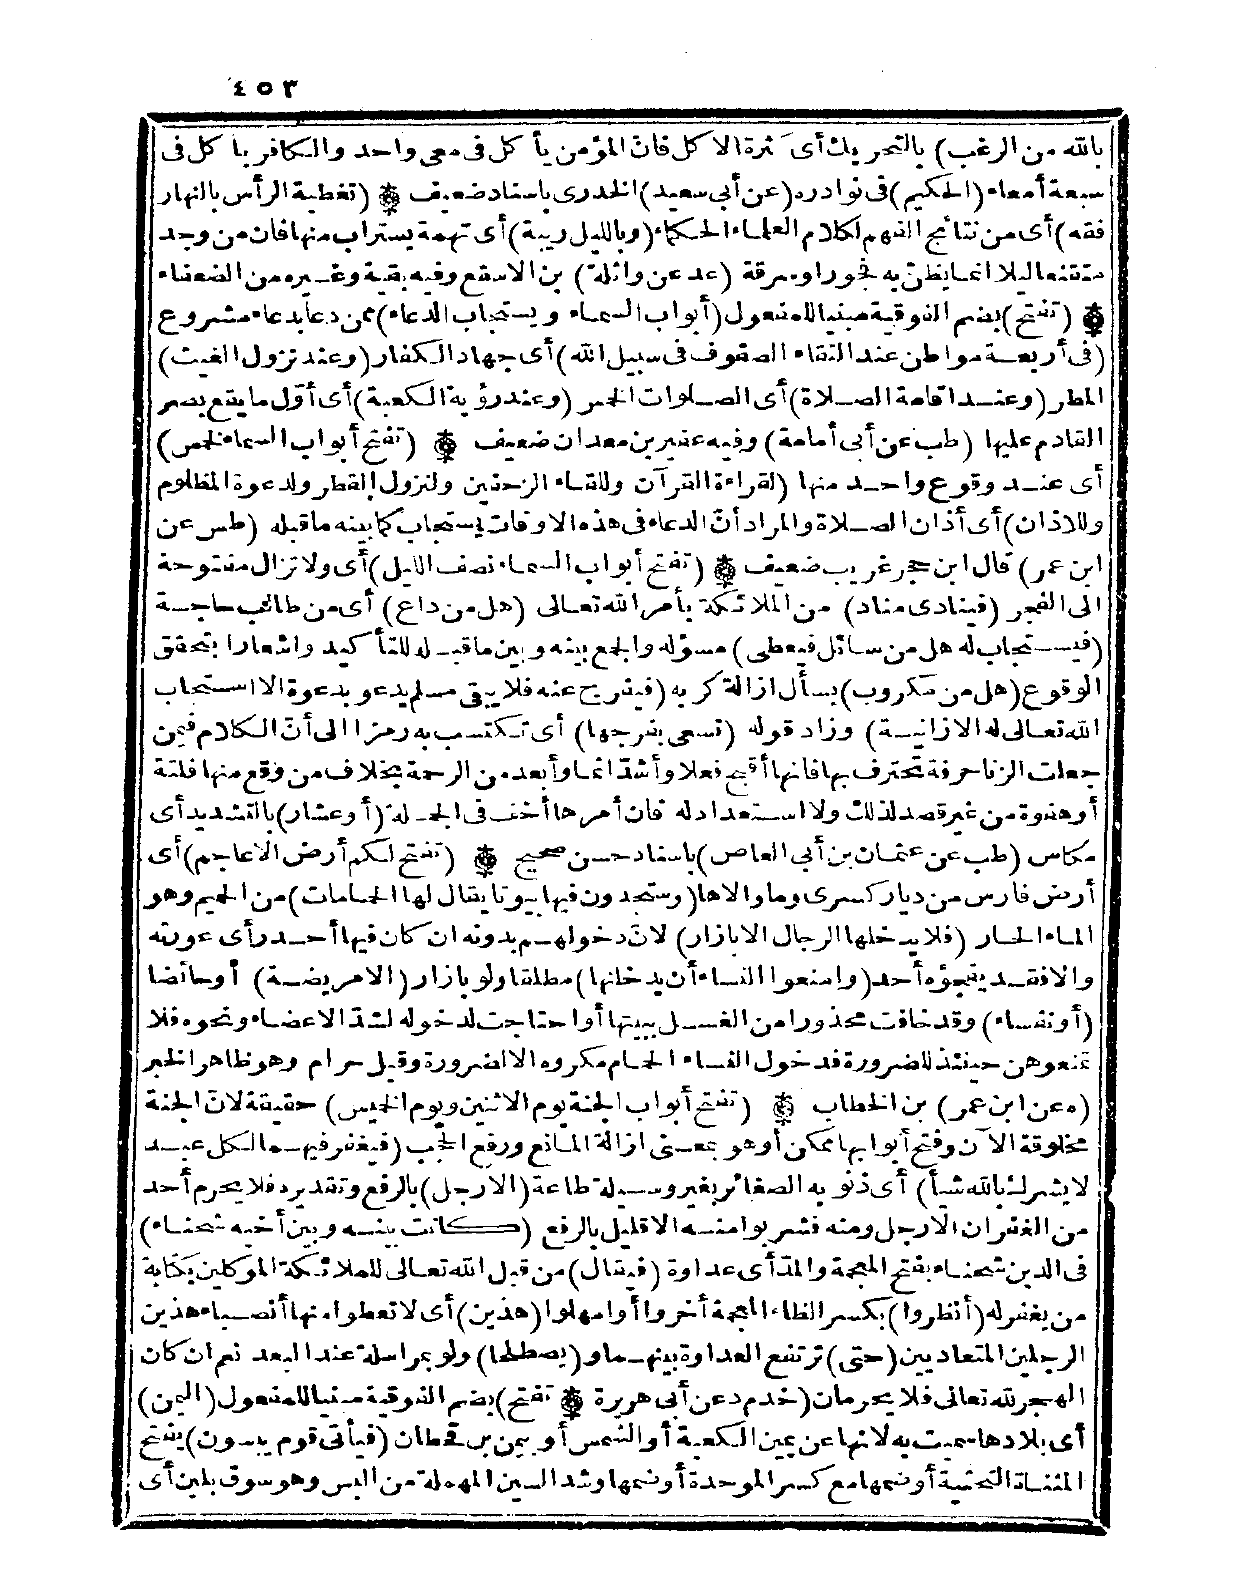 ٤٥٣
بالله من الرغب) بالتحريك أى كثرة الاكل فان المؤمن يأكل فى معى واحد والكافر يأكل فى
سبعة أمعاء (الحكيم) فى نوادره (عن أبى سعيد) الخدرى باسناد ضعيف ۞ (تغطية الرأس بالنهار
فقه) أى من نتائج الفهم لكلام العلماء الحكماء (وبالليل ريبة) أى تهمة يستراب منها فان من وجد
متقنعا ليلا انما يظن به فجور أو سرقة (عد عن واثلة) بن الاسقع وفيه بقية وغيره من الضعفاء
۞ (تفتح) بضم الفوقية مبنيا للمفعول (أبواب السماء ويستجاب الدعاء) ممن دعا بدعاء مشروع
(فى أربعة مواطن عند التقاء الصفوف فى سبيل الله) أى جهاد الكفار (وعند نزول الغيث)
المطر (وعند اقامة الصلاة) أى الصلوات الخمس (وعند رؤية الكعبة) أى أوّل ما يقع بصر
القادم عليها (طب عن أبى أمامة) وفيه عفير بن معدان ضعيف ۞ (تفتح أبواب السماء لخمس)
أى عند وقوع واحد منها (لقراءة القرآن وللقاء الزحفين ولنزول القطر ولدعوة المظلوم
وللاذان) أى أذان الصلاة والمراد أنّ الدعاء فى هذه الاوقات يستجاب كما بينه ما قبله (طس عن
ابن عمر) قال ابن حجر غريب ضعيف ۞ (تفتح أبواب السماء نصف الليل) أى ولا تزال مفتوحة
الى الفجر (فينادى مناد) من الملائكة بأمر الله تعالى (هل من داع) أى من طالب حاجة
(فيستجاب له هل من سائل فيعطى) مسؤله والجمع بينه وبين ما قبله للتأكيد واشعارا بتحقق
الوقوع (هل من مكروب) يسأل ازالة كربه (فيفرج عنه فلا يبقى مسلم يدعو بدعوة الا استجاب
الله تعالى له الا زانية) وزاد قوله (تسعى بفرجها) أى تكتسب به رمزا الى أنّ الكلام فيمن
جعلت الزنا حرفة تحترف بها فانها أقبح فعلا وأشدّ اثما وأبعد من الرحمة بخلاف من وقع منها فلتة
أو هفوة من غير قصد لذلك ولا استعداد له فان أمرها أخف فى الجملة (أو عشار) بالتشديد أى
مكاس (طب عن عثمان بن أبى العاص) باسناد حسن صحيح ۞ (تفتح لكم أرض الاعاجم) أى
أرض فارس من ديار كسرى وما والاها (وستجدون فيها بيوتا يقال لها الحمامات) من الحميم وهو
الماء الحار (فلا يدخلها الرجال الا بازار) لانّ دخولهم بدونه ان كان فيها أحد رأى عورته
والا فقد يفجؤه أحد (وامنعوا النساء أن يدخلنها) مطلقا ولو بازار (الا مريضة) أو حائضا
(أو نفساء) وقد خافت محذورا من الغسل ببيتها أو احتاجت لدخوله لشدّ الاعضاء ونحوه فلا
تمنعوهن حينئذ للضرورة فدخول النساء الحمام مكروه الا لضرورة وقيل حرام وهو ظاهر الخبر
(ه عن ابن عمر) بن الخطاب ۞ (تفتح أبواب الجنة يوم الاثنين ويوم الخميس) حقيقة لانّ الجنة
مخلوقة الآن وفتح أبوابها ممكن أو هو بمعنى ازالة المانع ورفع الحجب (فيغفر فيهما لكل عبد
لا يشرك بالله شيأ) أى ذنوبه الصغائر بغير وسيلة طاعة (الا رجل) بالرفع وتقديره فلا يحرم أحد
من الغفران الا رجل ومنه فشربوا منه الا قليل بالرفع (كانت بينه وبين أخيه شحناء)
فى الدين شحناء بفتح المعجمة والمدّ أى عداوة (فيقال) من قبل الله تعالى للملائكة الموكلين بكتابة
من يغفر له (أنظروا) بكسر الظاء المعجمة أخروا أو امهلوا (هذين) أى لا تعطوا منها أنصباء هذين
الرجلين المتعاديين (حتى) ترتفع العداوة بينهما و(يصطلحا) ولو بمراسلة عند البعد نعم ان كان
الهجر لله تعالى فلا يحرمان (خد م د عن أبى هريرة ۞ تفتح) بضم الفوقية مبنيا للمفعول (اليمن)
أى بلادها سميت به لانها عن يمين الكعبة أو الشمس أو بيمن بن قحطان (فيأتى قوم يبسون) بفتح
المثناة التحتية أو ضمها مع كسر الموحدة أو ضمها وشد السين المهملة من البس وهو سوق بلين أى